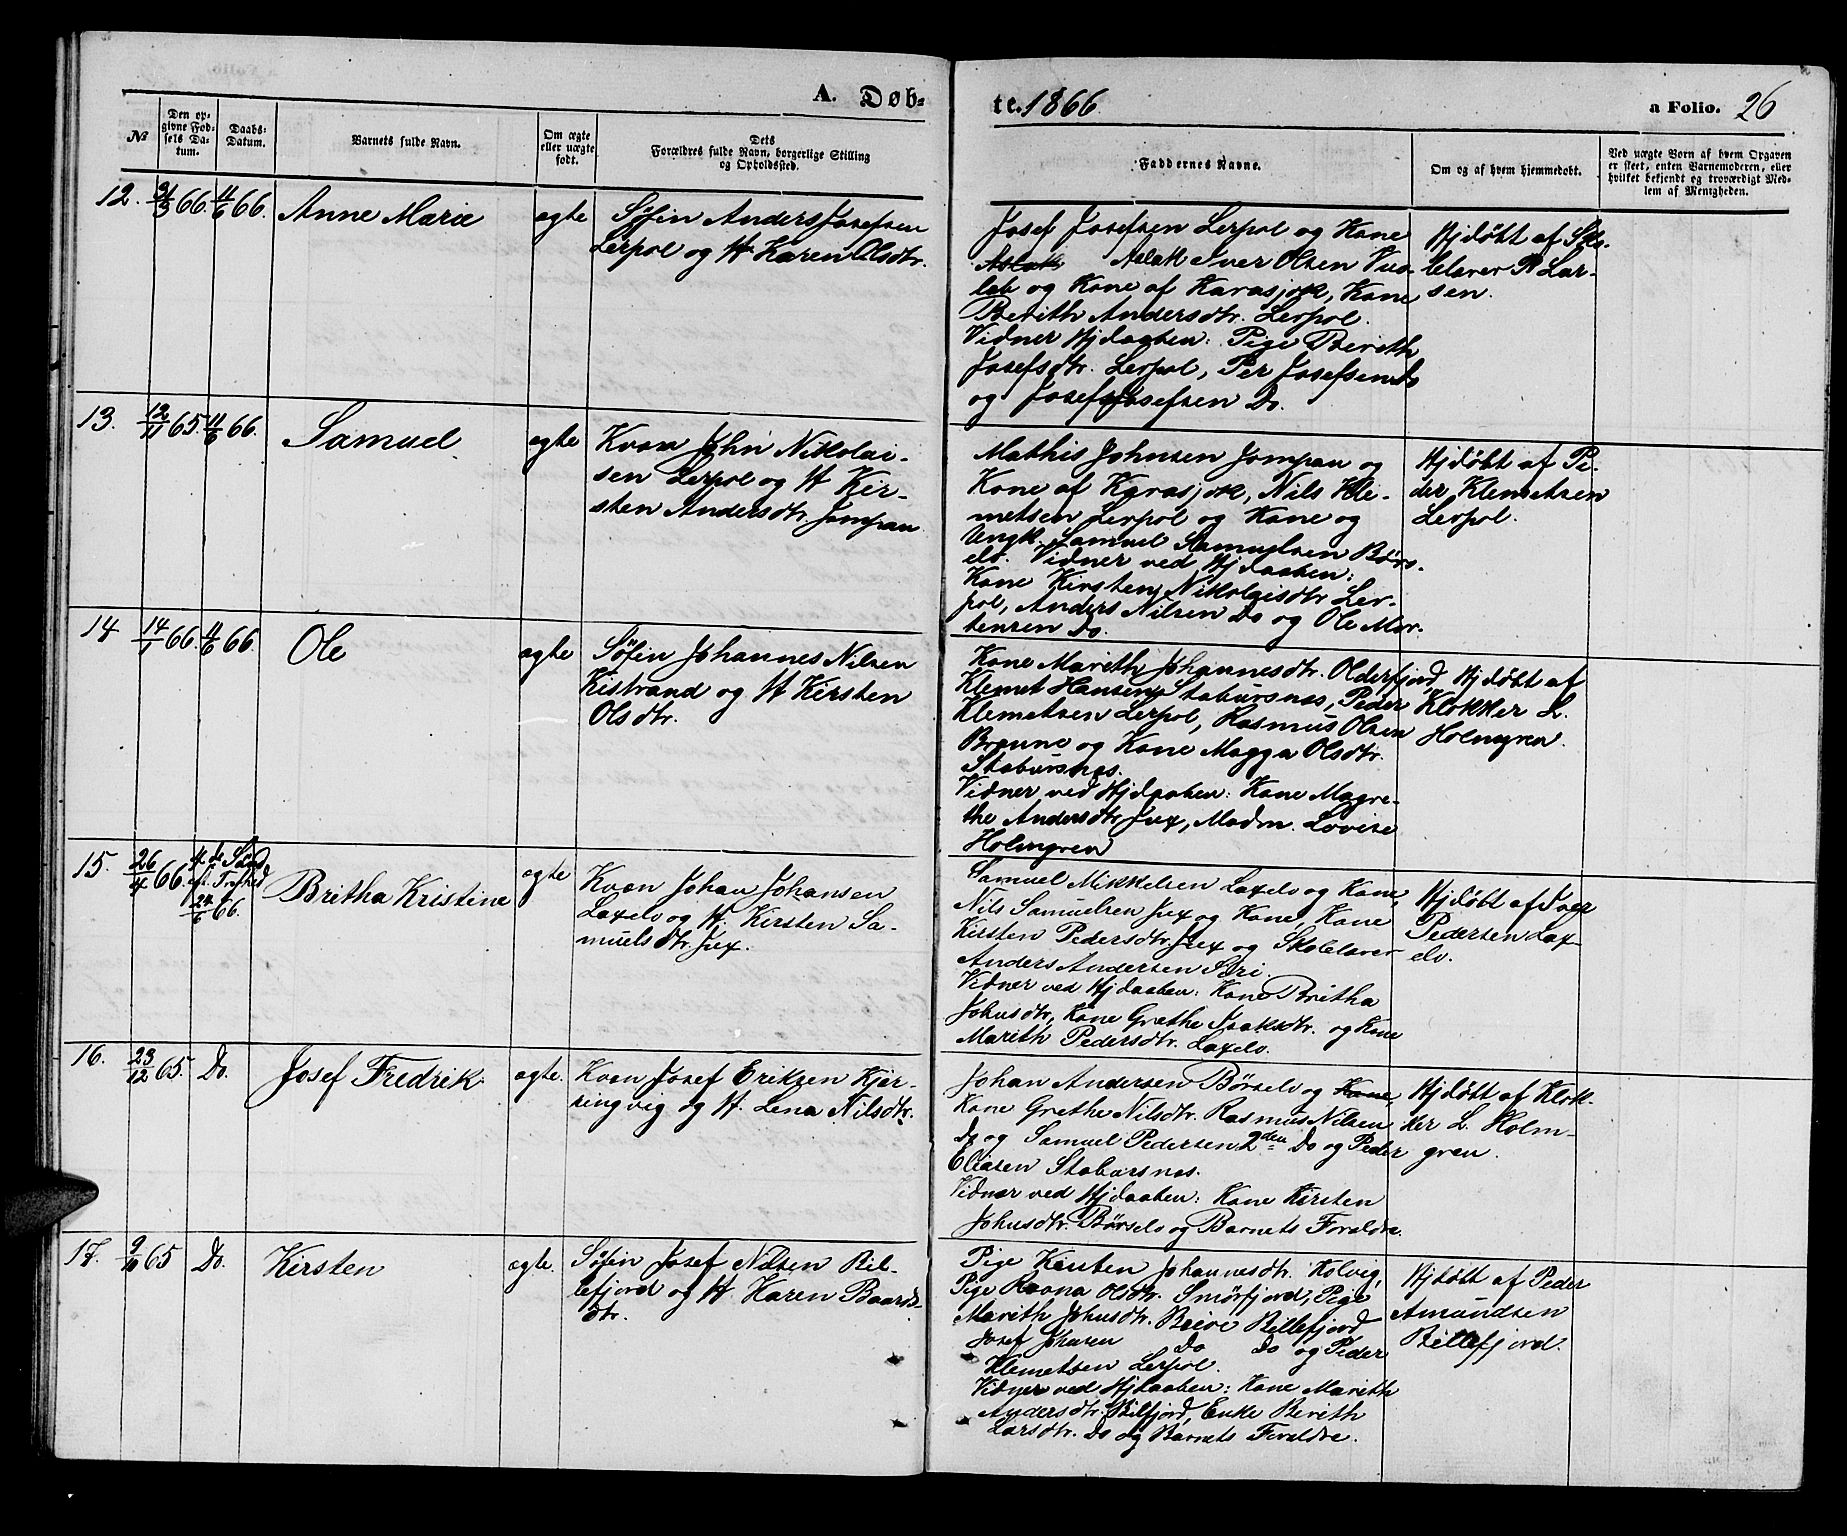 A. Døb-
te. 1866.
a Folio. 26
No
Den op-
givne Fød-
sels Da-
tum.
Daabs-
Datum.
Barnets fulde Navn.
Om ægte
eller uægte
født.
Dets
Forældres fulde Navn, borgerlige Stilling
og Opholdssted.
Faddernes Navne.
Om og af hvem hjemmedøbt.
Ved uægte Børn af hvem Opgaven
er skeet, enten Barnemoderen, eller
hvilket bekjendt og troværdigt Med-
lem af Menigheden.
12. 31/3 66. 11/6 66. Anne Marie
ægte
Søfin Anders Josefsen
Lerpol og H Karen Olsdtr.
Josef Josefsen Lerpol og Kone
Aslak Aslak Iver Olsen Vuo-
lab og Kone af Karasjok, Kone
Berith Andersdtr. Lerpol.
Vidner Hjdaaben: Pige Berith
Josefsdtr. Lerpol, Per Josefsen do
og Josef Josefsen Do.
Hjdøbt af Sko-
lelærer P Lar-
sen.
13. 12/11 65. 11/6 66. Samuel
ægte
Kvæn John Nikolai-
sen Lerpol og H Kir-
sten Andersdtr Jompan
Mathis Johnsen Jompan og
Kone af Karasjok, Nils Kle-
metsen Lerpol og Kone og
Ungk. Samuel Samuelsen Børs-
elv. Vidner ved Hjdaaben:
Kone Kirsten Nikolaisdtr Ler-
pol, Anders Nilsen Do og Ole Mor-
tensen Do.
Hjdøbt af Pe-
der Klemetsen
Lerpol.
14 14/1 66. 11/6 66. Ole
ægte
Søfin Johannes Nilsen
Kistrand og H Kirsten
Olsdtr.
Kone Marith Johannesdtr. Olderfjord,
Klemet Hansen Stabursnes, Peder
Klemetsen Lerpol, Rasmus Olsen
Braune og Kone Magga Olsdtr.
Stabursnes.
Vidner ved Hjdaaben: Kone Magre-
the Andersdtr Jgx, Madm. Lovise
Holmgren
Hjdøbt af
Klokker L.
Holmgren.
15. 26/4 66. 4de Sønd
eft. Trefhed
24/6 66. Britha Kristine
ægte
Kvæn Johan Johansen
Laxelv og H Kirsten Sa-
muelsdtr. Jgx.
Samuel Mikkelsen Laxelv og Kone,
Nils Samuelsen Jgx og Kone, Kone
Kirsten Pedersdtr. Jgx og Skolelærer
Anders Andersen Siri.
Vidner ved Hjdaaben: Kone Britha
Johnsdtr, Kone Grethe Isaksdtr. og Kone
Marith Pedersdtr. Laxelv.
Hjdøbt af Iver
Pedersen Lax-
elv.
16. 23/12 65. Do. Josef Fredrik
ægte.
Kvæn Josef Eriksen Kjær-
ringvig og H. Lena Nilsdtr.
Johan Andersen Børselv og Kone,
Kone Grethe Nilsdtr. Rasmus Nilsen
Do og Samuel Pedersen 2den Do og Peder
Eliasen Stabursnes.
Vidner ved Hjdaaben: Kone Kirsten
Johnsdtr. Børselv og Barnets Forældre.
Hjdøbt af Klok-
ker L. Holm-
gren.
17. 9/10 65 Do. Kirsten
ægte.
Søfin Josef Nilsen Bil-
lefjord og H Karen Baards-
dtr.
Pige Kirsten Johannesdtr. Kolvig,
Pige Ravna Olsdtr. Smörfjord, Pige
Marith Johnsdtr. Beive Billefjord
Josef Johnsen Do Do og Peder
Klemetsen Lerpol.
Vidner ved Hjdaaben: Kone Marith
Andersdtr. Bilfjord, Enke Berith
Larsdtr. Do og Barnets Forældre.
Hjdøbt af Peder
Amundsen
Billefjord.